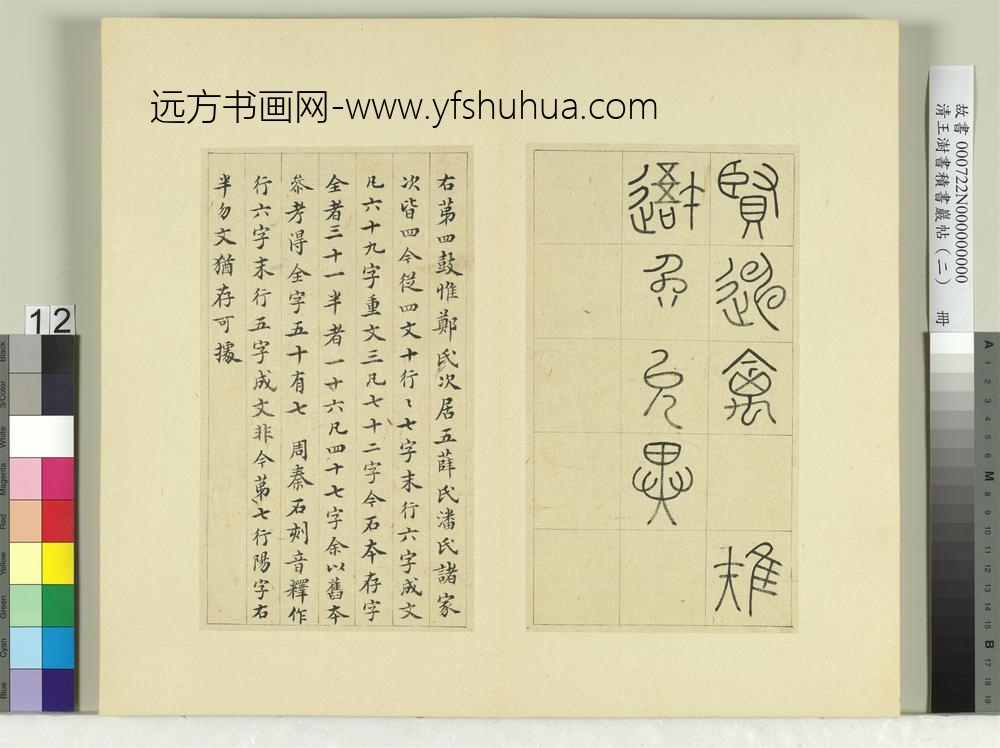 远方书画网-www.yfshuhua.com
故書 000722N000000000
清王澍書積書巖帖（二） 冊
賢 禽
允異
右苐四鼓惟鄭氏次居五薛氏潘氏諸家
次皆四今從四文十行〻七字末行六字成文
凡六十九字重文三凡七十二字今石夲存字
全者三十一半者一十六凡四十七字余以舊夲
叅考得全字五十有七 周秦石刻音釋作
行六字末行五字成文非今苐七行陽字右
半勿文猶存可據
12
Black
3/Color
White
Magenta
Red
Yellow
Green
Cyan
Blue
A 1 2 3 4 5 6 M 8 9 10 11 12 13 14 15 B 17 18 19